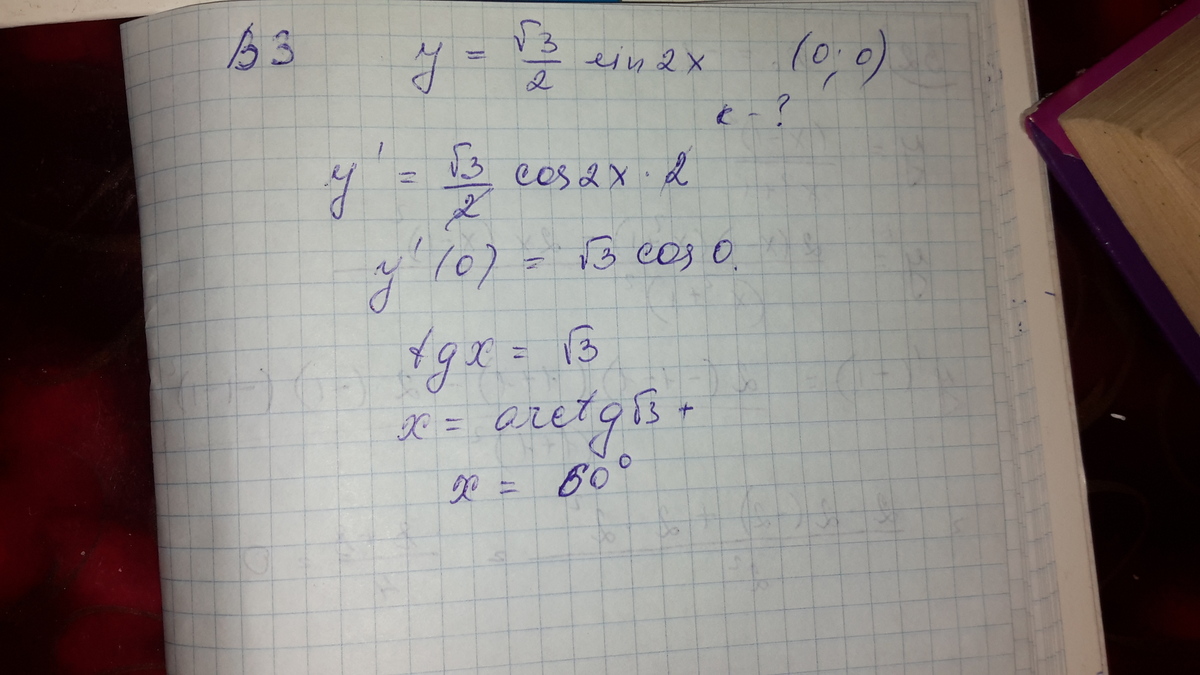 В3 y = √3/2 sin 2x (0; 0)
к - ?
y' = √3/2 cos 2x · 2
y'(0) = √3 cos 0.
tg x = √3
x = arctg √3 +
x = 60°